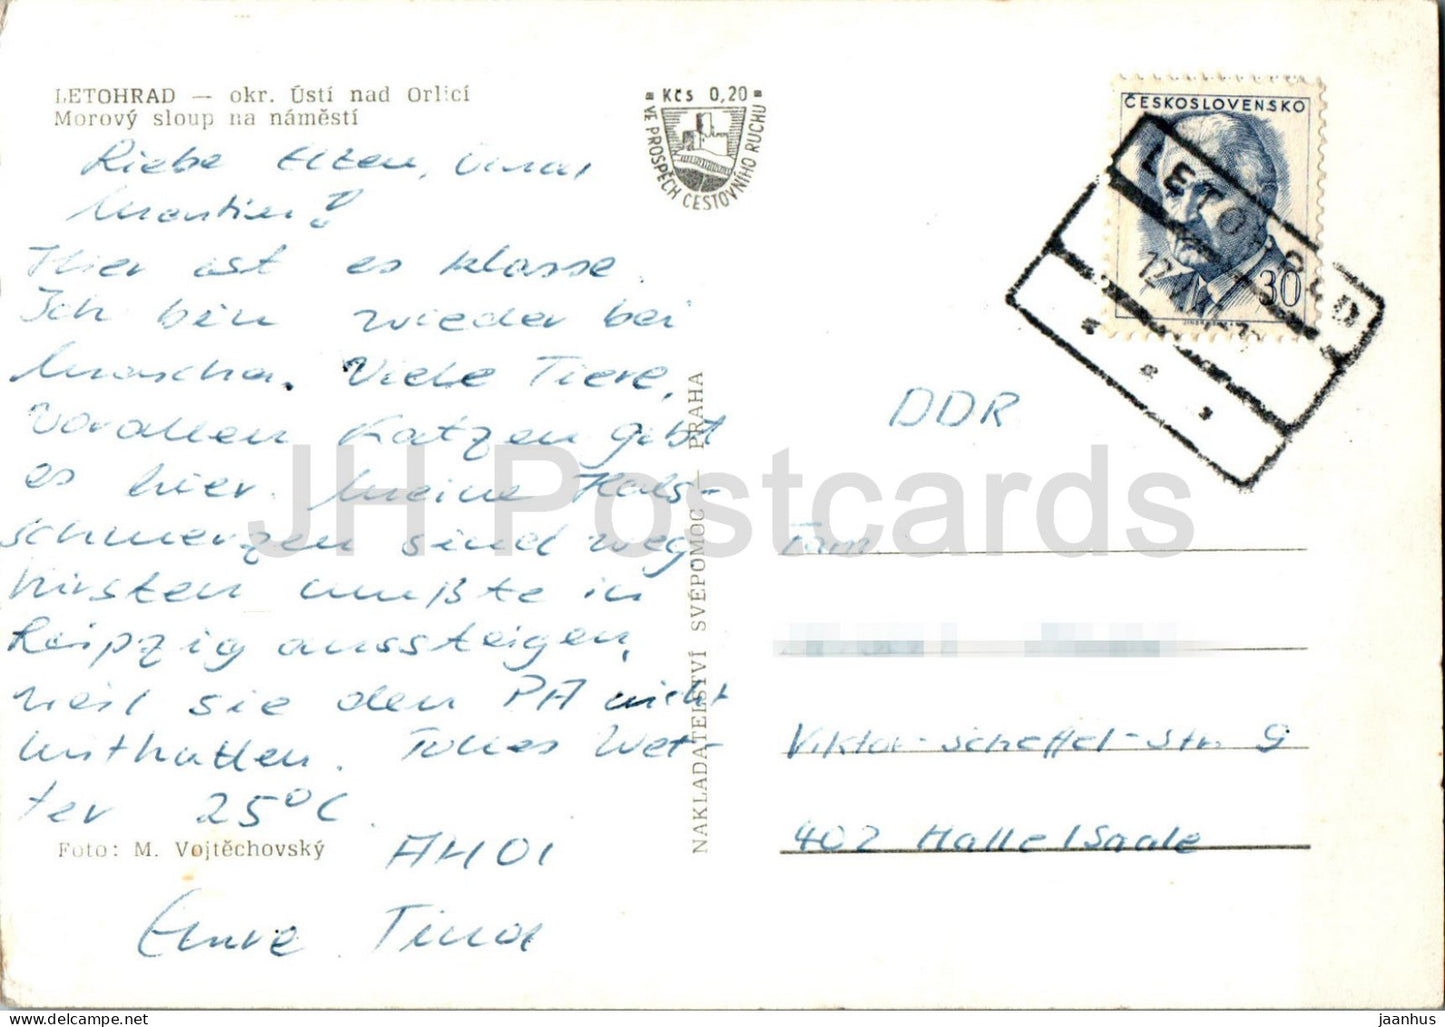 LETOHRAD — okr. Ústí nad Orlicí
Morový sloup na náměstí
Kčs 0,20
VE PROSPĚCH CESTOVNÍHO RUCHU
ČESKOSLOVENSKO
30
LETOHRAD
Liebe Eltern, Oma,
Martin!
Hier ist es klasse.
Ich bin wieder bei
Mascha. Viele Tiere,
vorallen Katzen gibt
es hier. Meine Hals-
schmerzen sind weg
Kirsten mußte in
Leipzig aussteigen,
weil sie den PA nicht
mithatten. Tolles Wet-
ter 25°C.
AHOI
Eure Tina
Foto: M. Vojtěchovský
NAKLADATELSTVÍ SVÉPOMOC — PRAHA
DDR
Fam
Viktor-Scheffel-Str. 9
402 Halle/Saale
JH Postcards
https://www.delcampe.net
jaanhus